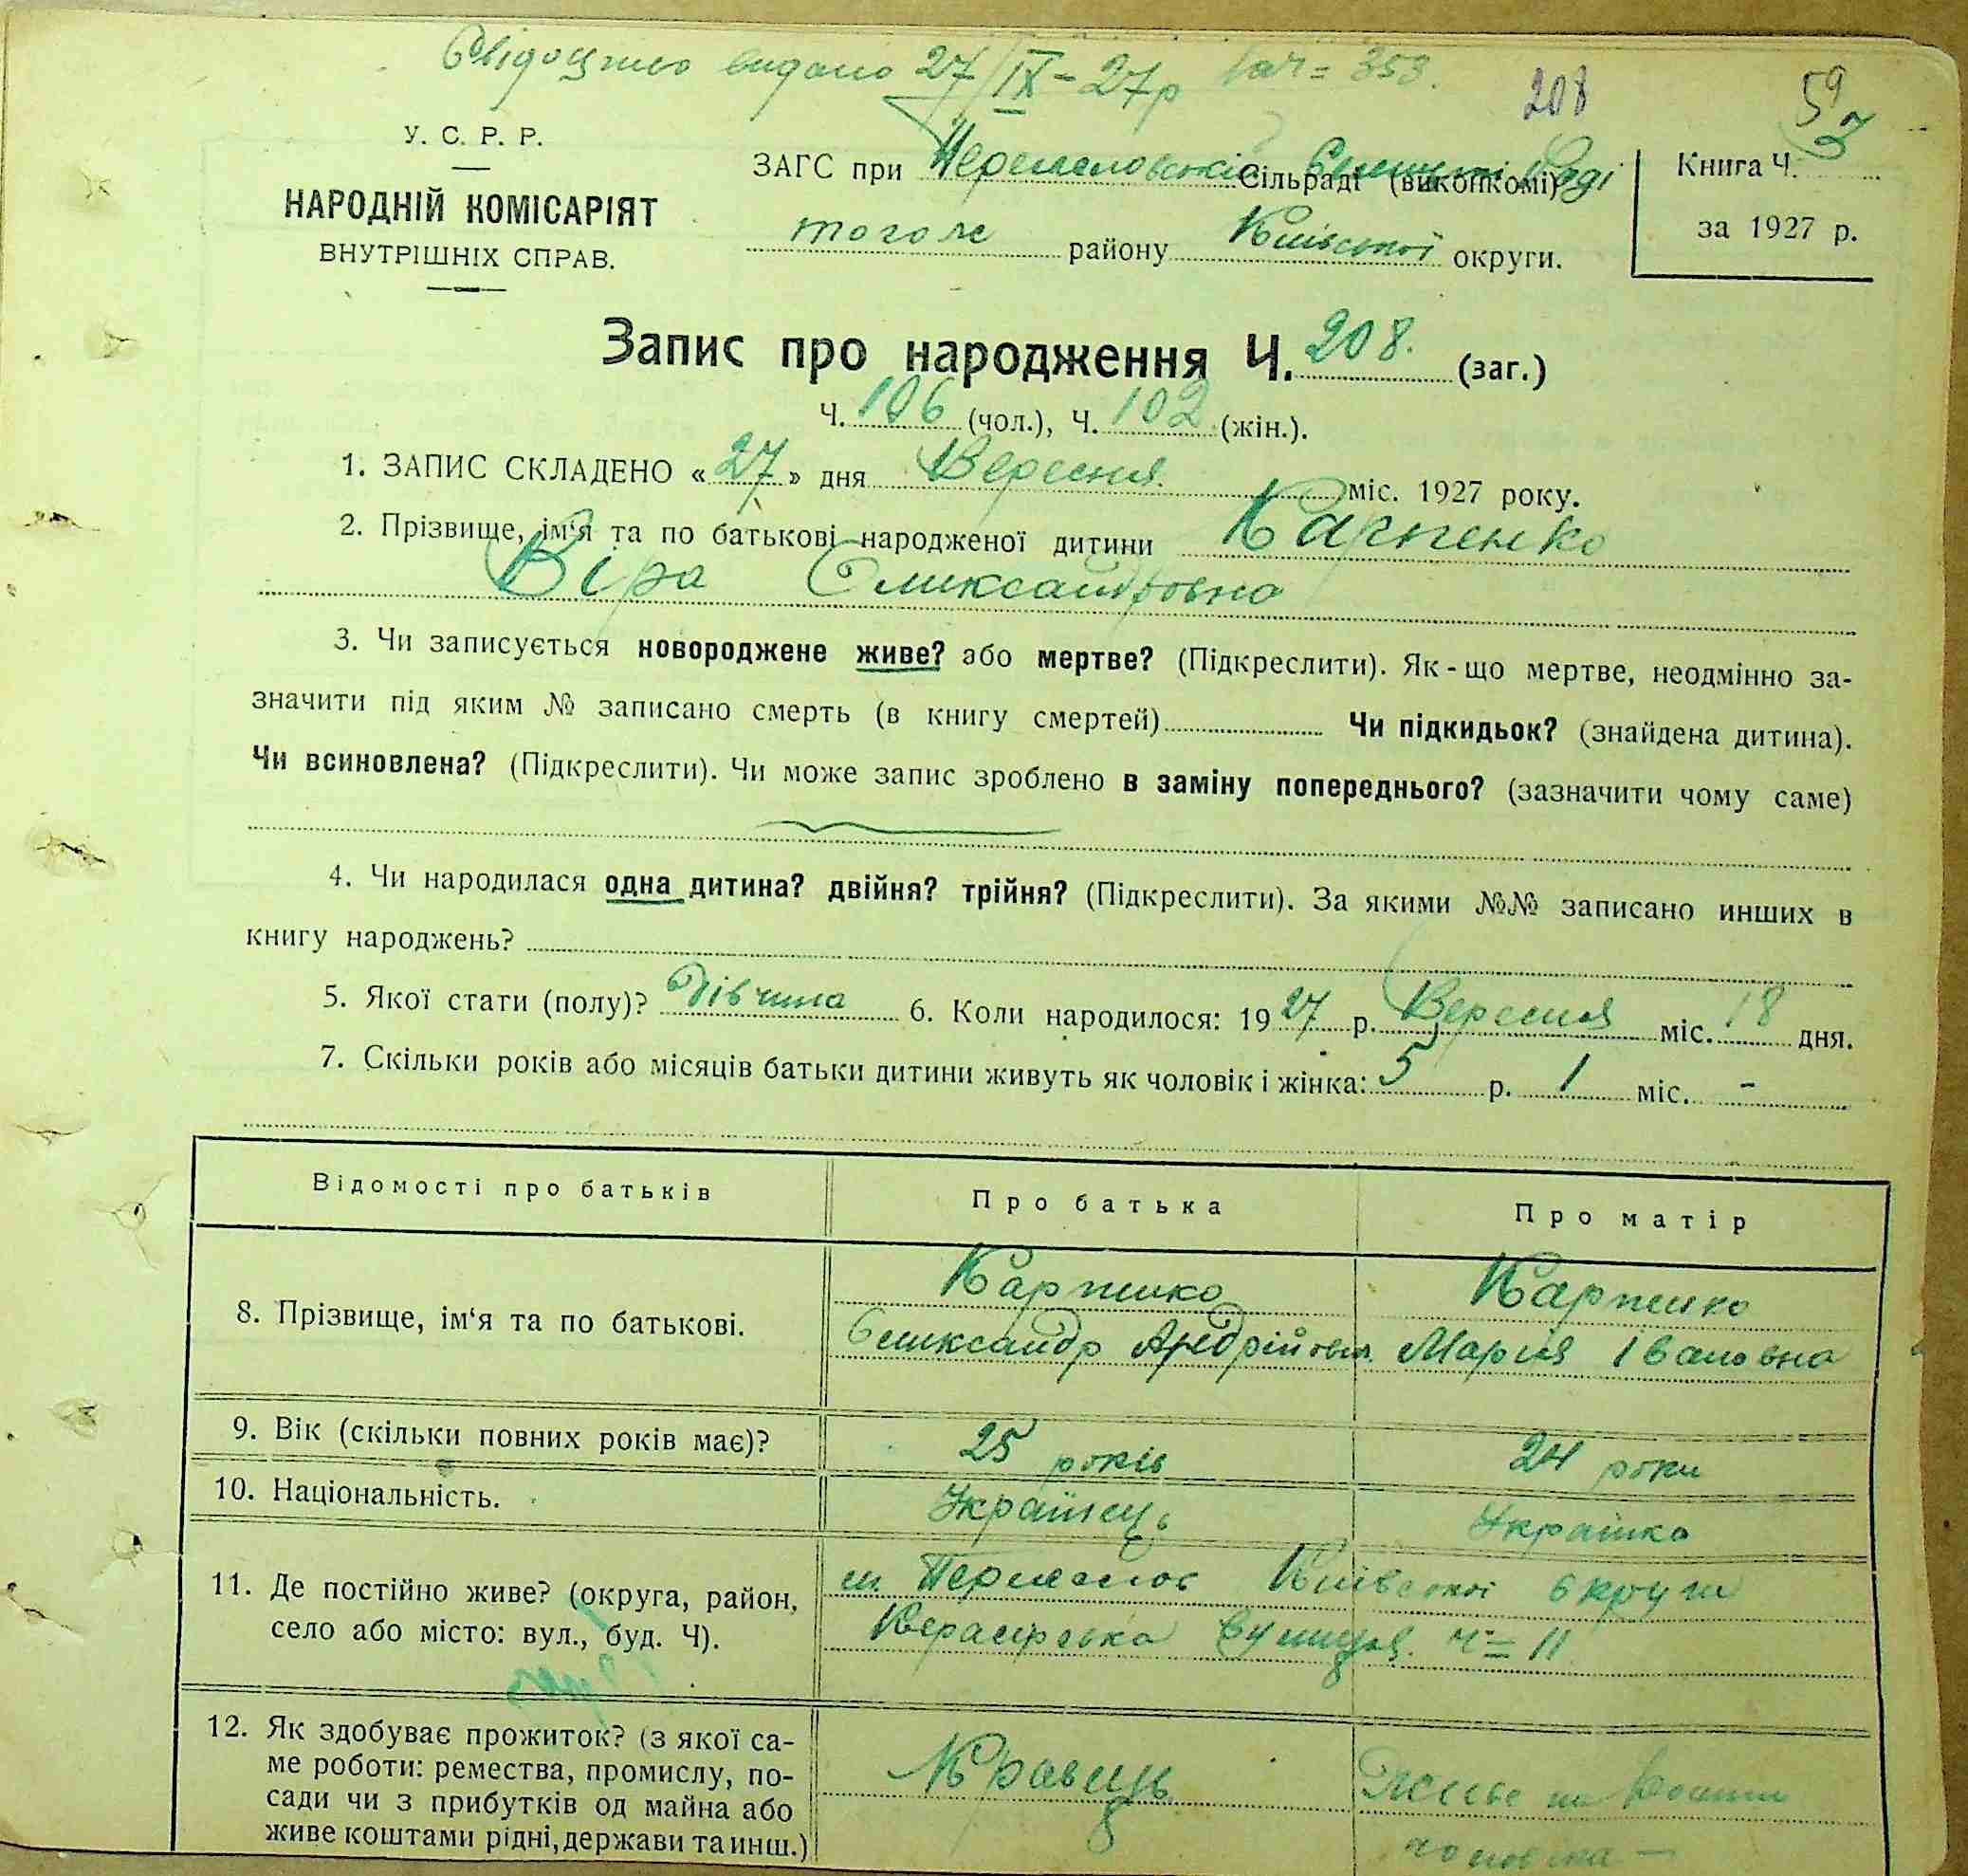 Свідоцтво видано 27/IX-27р 353.
208
59
3
У. С. Р. Р.
НАРОДНІЙ КОМІСАРІЯТ
ВНУТРІШНІХ СПРАВ.
ЗАГС при Переяславській Сільраді (виконкомі)
того ж району Київської округи.
Книга Ч.
за 1927 р.
Запис про народження Ч. 208. (заг.)
Ч. 106 (чол.), Ч. 102 (жін.).
1. ЗАПИС СКЛАДЕНО « 27 » дня Вересня міс. 1927 року.
2. Прізвище, ім'я та по батькові народженої дитини Карпенко
Віра Олександровна
3. Чи записується новороджене живе? або мертве? (Підкреслити). Як-що мертве, неодмінно за-
значити під яким № записано смерть (в книгу смертей) Чи підкидьок? (знайдена дитина).
Чи всиновлена? (Підкреслити). Чи може запис зроблено в заміну попереднього? (зазначити чому саме)
4. Чи народилася одна дитина? двійня? трійня? (Підкреслити). За якими №№ записано инших в
книгу народжень?
5. Якої стати (полу)? Дівчина 6. Коли народилося: 1927 р. Вересня міс. 18 дня.
7. Скільки років або місяців батьки дитини живуть як чоловік і жінка: 5 р. 1 міс. -
Відомості про батьків
Про батька
Про матір
8. Прізвище, ім'я та по батькові.
Карпенко
Олександр Андрійович
Карпенко
Марія Івановна
9. Вік (скільки повних років має)?
25 років
24 роки
10. Національність.
Українець
Українка
11. Де постійно живе? (округа, район,
село або місто: вул., буд. Ч).
м. Переяслов Київської округи
вулиця ч= 11
12. Як здобуває прожиток? (з якої са-
ме роботи: ремества, промислу, по-
сади чи з прибутків од майна або
живе коштами рідні, держави та инш.)
Кравець
Живе на кошти
чоловіка —